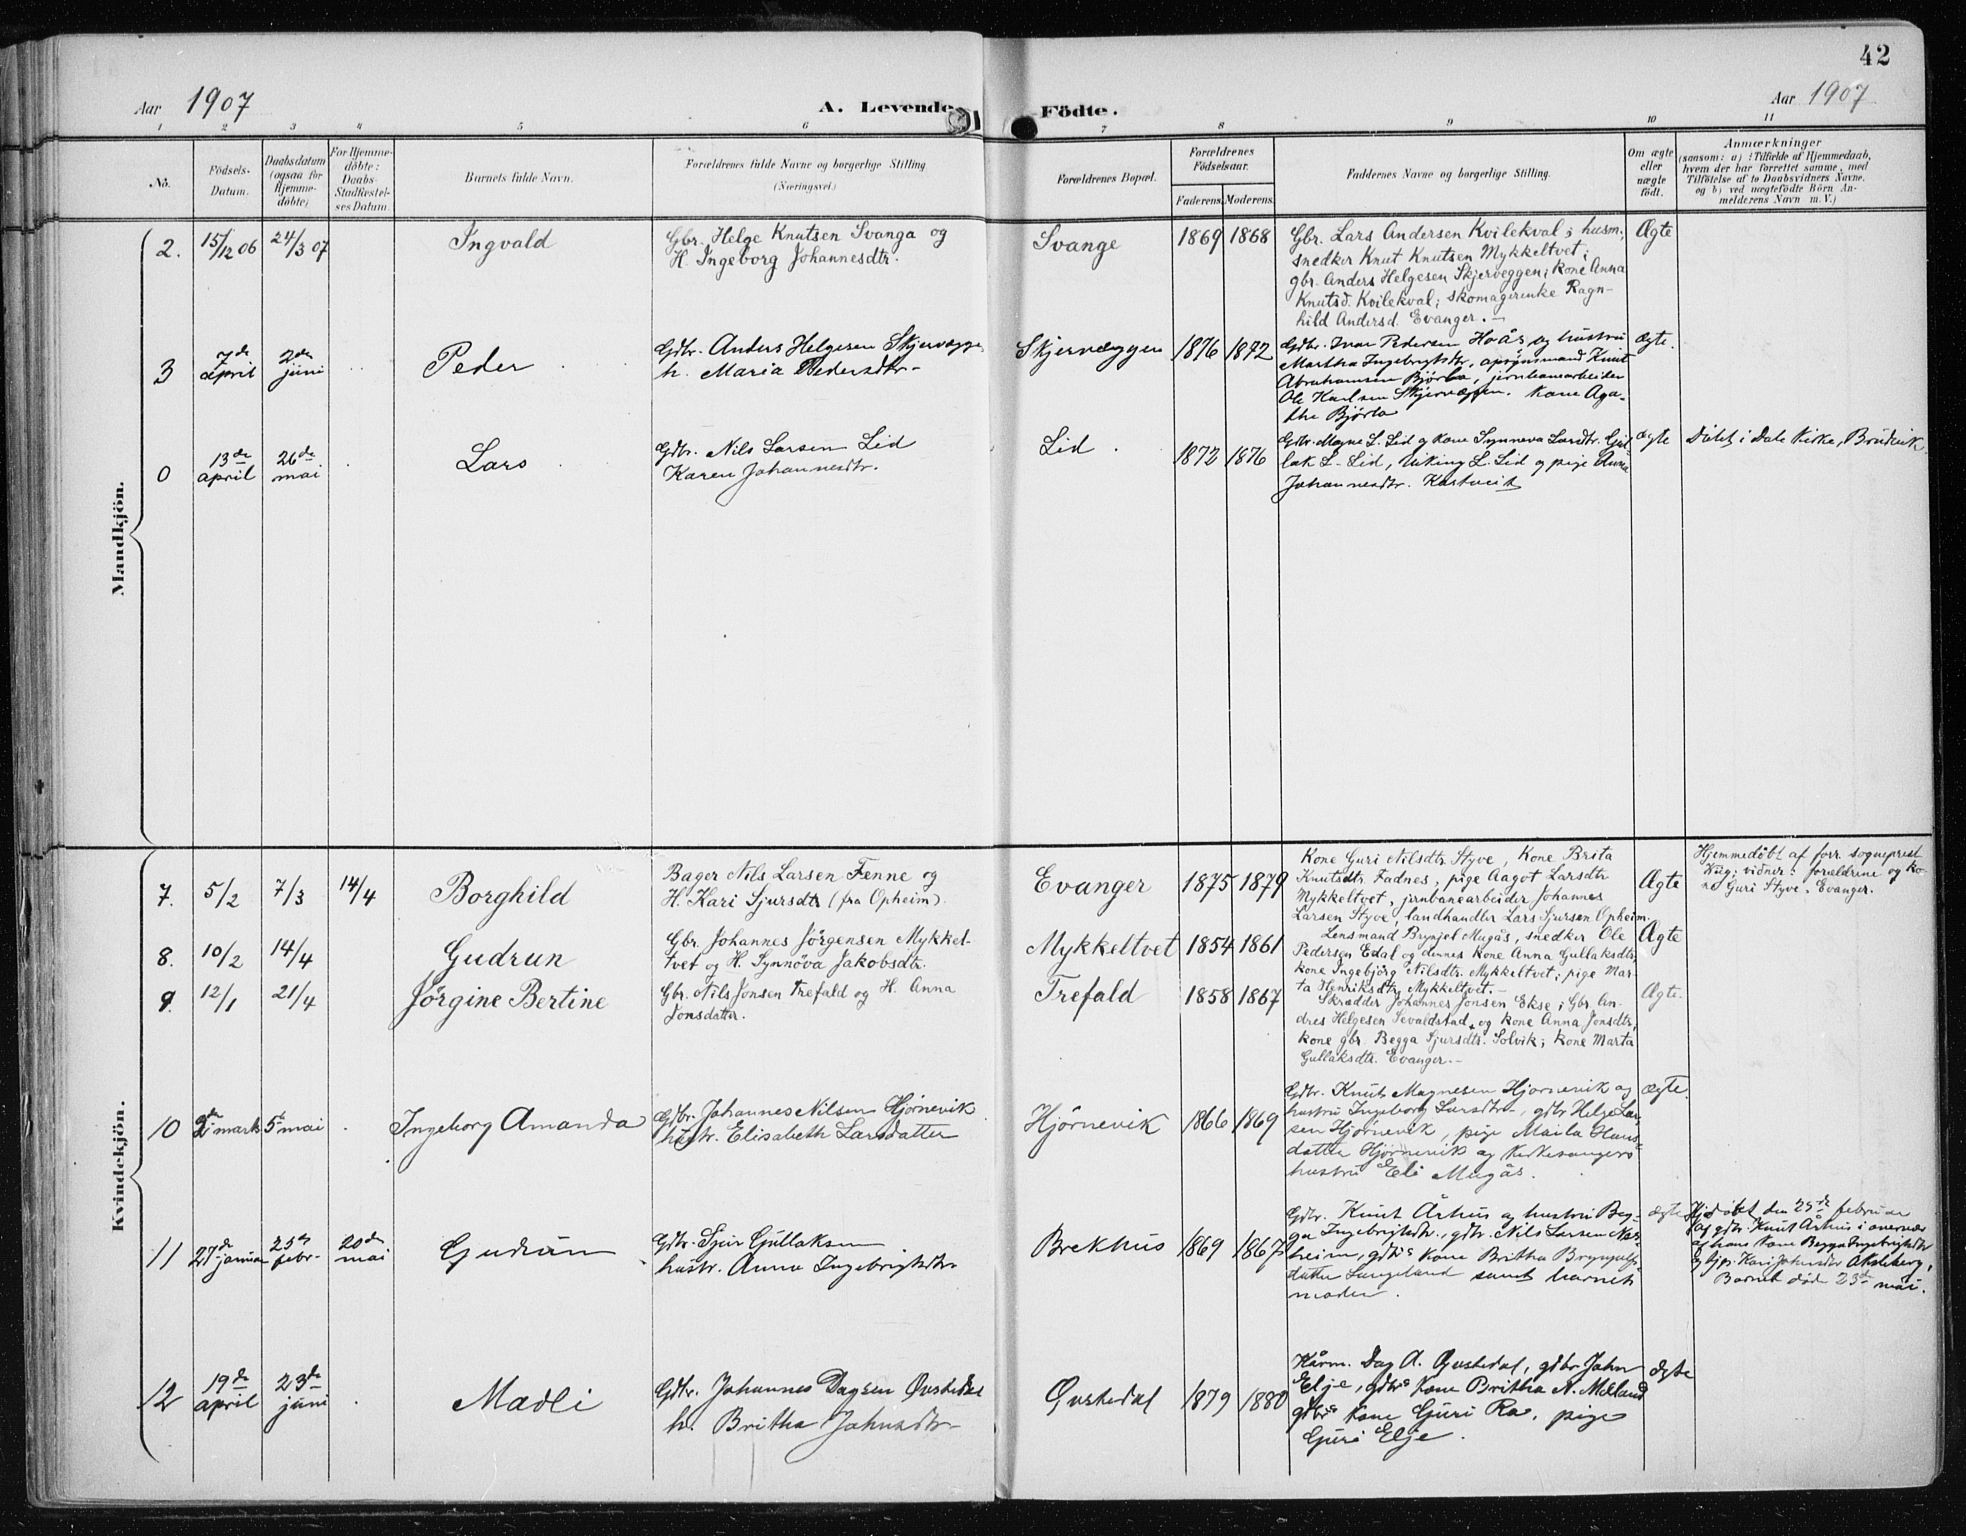 42
Aar 1907 A. Levende Födte. Aar 1907
1 2 3 4 5 6 7 8 9 10 11
No.
Födsels-
Datum.
Daabsdatum
(ogsaa for
Hjemme-
döbte)
For Hjemme-
döbte:
Daabs-
Stadfæstel-
ses Datum.
Barnets fulde Navn.
Forældrenes fulde Navne og borgerlige Stilling
(Næringsvei.)
Forældrenes Bopæl.
Forældrenes
Födselsaar.
Faderens. Moderens.
Faddernes Navne og borgerlige Stilling.
Om ægte
eller
uægte
födt.
Anmærkninger
(saasom: a) i Tilfælde af Hjemmedaab,
hvem der har forrettet samme, med
Tilföielse af to Daabsvidners Navne.
og b) ved uægtefödte Börn An-
melderens Navn m. V.)
Mandkjön.
2. 15/12 06 24/3 07 Ingvald
Gbr. Helge Knutsen Svanga og
H. Ingeborg Johannesdtr.
Svange 1869 1868
Gbr. Lars Andersen Kvilekval; husm.
snedker Knut Knutsen Mykkeltvet;
gbr. Anders Helgesen Skjerveggen; kone Anna
Knutsd. Kvilekval; skomagerenke Ragn-
hild Andersd. Evanger.-
Ægte
3 7de april 2den juni Peder
Gdbr. Anders Helgesen Skjervægge
h. Maria Pedersdtr-
Skjervæggen 1876 1872
Gdbr. Ivar Pedersen Hoås og hustru
Martha Ingebrigtsdtr, opsynsmand Knut
Abrahamsen Bjørlo, jernbanearbeider
Ole Karlsen Skjervæggen. Kone Aga-
the Bjørlo
ægte.
0 13de april 26de mai Lars
Gdbr. Nils Larsen Lid
Karen Johannesdtr.
Lid 1872 1876
Gdbr. Magne L. Lid og kone Synneva Larsdtr. Gul-
lak L. Lid, Viking L. Lid og pige Anna
Johannesdtr.
ægte
Döbt i Dale Kirke, Bruvik
Kvindekjön.
7. 5/2 7/3 14/4 Borghild
Bager Nils Larsen Fenne og
H. Kari Sjursdtr (fra Opheim).
Evanger 1875 1879
Kone Guri Nilsdtr. Styve, Kone Brita
Knutsdtr. Fadnes, pige Aagot Larsdtr
Mykkeltvet, jernbanearbeider Johannes
Larsen Styve, landhandler Lars Sjursen Opheim.
Ægte
Hjemmedöbt af forr. sogneprest
vidner: forældrene og ko-
ne Guri Styve, Evanger.
8. 10/2 14/4 Gudrun
Gbr. Johannes Jörgensen Mykkel-
tvet og H. Synnöva Jakobsdtr.
Mykkeltvet 1854 1861
Lensmand Brynjel Mugås, snedker Ole
Pedersen Edal og dennes kone Anna Gullaksdtr.
kone Ingebjörg Nilsdtr. Mykkeltvet; pige Mar-
ta Henriksdtr. Mykkeltvet.-
Ægte
9. 12/1 21/4 Jörgine Bertine
Gbr. Nils Jonsen Trefald og H. Anna
Jonsdatter.
Trefald 1858 1867
Skrædder Johannes Jonsen Ekse; Gbr. An-
dres Helgesen Sevaldstad og kone Anna Jonsdtr,
kone gbr. Begga Sjursdtr. Solvik; kone Marta
Gullaksdtr. Evanger.-
Ægte.
10 marts 5te mai Ingeborg Amanda
Gdbr. Johannes Nilsen Hjørnevik
hustr. Elisabeth Larsdatter
Hjørnevik 1866 1869
Gdbr. Knut Magnesen Hjørnevik og
hustru Ingeborg Larsdtr, gdbr Helge Lar-
sen Hjørnevik, pige Maila Hans-
datter Hjørnevik og Kirkesangers
hustru Eli Mugås.
ægte.
11 27de januar 25de febr- 20de mai Gudrun
Gdbr. Sjur Gullaksen
hustr. Anna Ingebrigtsdtr
Brekhus 1869 1867
Gdbr. Knut Århus og hustru Beg-
ga Ingebrigtsdtr., gdbr. Nils Larsen
gdbrs kone Britha Brynjulfs-
datter Langeland samt barnets
moder.
ægte
Hjdøbt den 25de februar
af gdbr. Knut Århus i overvær
af hans kone Begga Ingebrigtsdtr
og
Barnet døde 23de mai.
12 19de april 23de juni Madli
Gdbr. Johannes Dagsen Øvstedal
h. Britha Johnsdtr-
Øvstedal 1879 1880
Kårm. Dag A. Øvstedal, gdbr John
Elje, gdbrs kone Britha N. Melland
gdbrs kone Guri Ra, pige
Guri Elje.
ægte